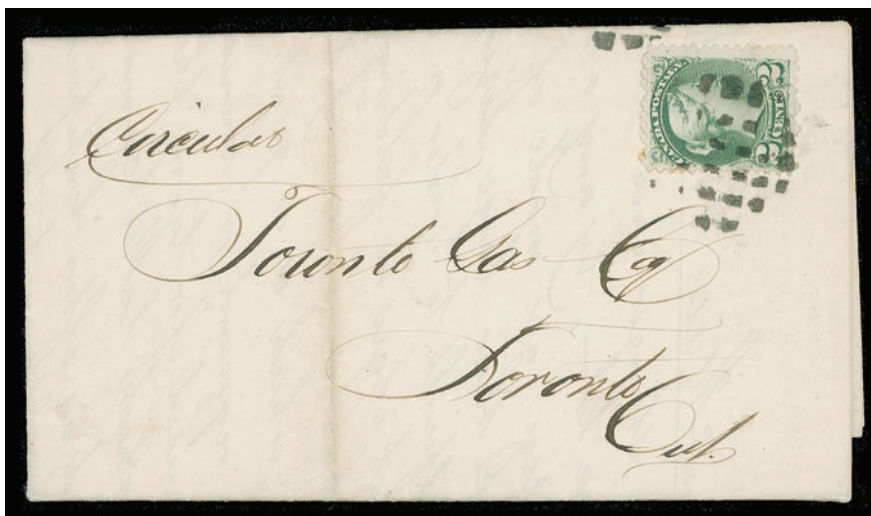 Circular
Toronto Gas Coy
Toronto
Ont.
CANADA POSTAGE
2 CENTS 2